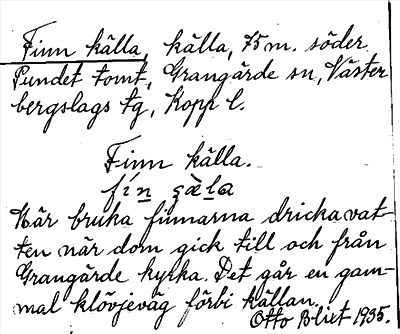 Finn källa, källa, 75 m. söder
Pundet tomt, Grangärde sn, Väster
bergslags tg, Kopp l.
Finn källa.
fín çàla
Här bruka finnarna dricka vat-
ten när dom gick till och från
Grangärde kyrka. Det går en gam-
mal klövjeväg förbi källan.
Otto Blixt 1935.